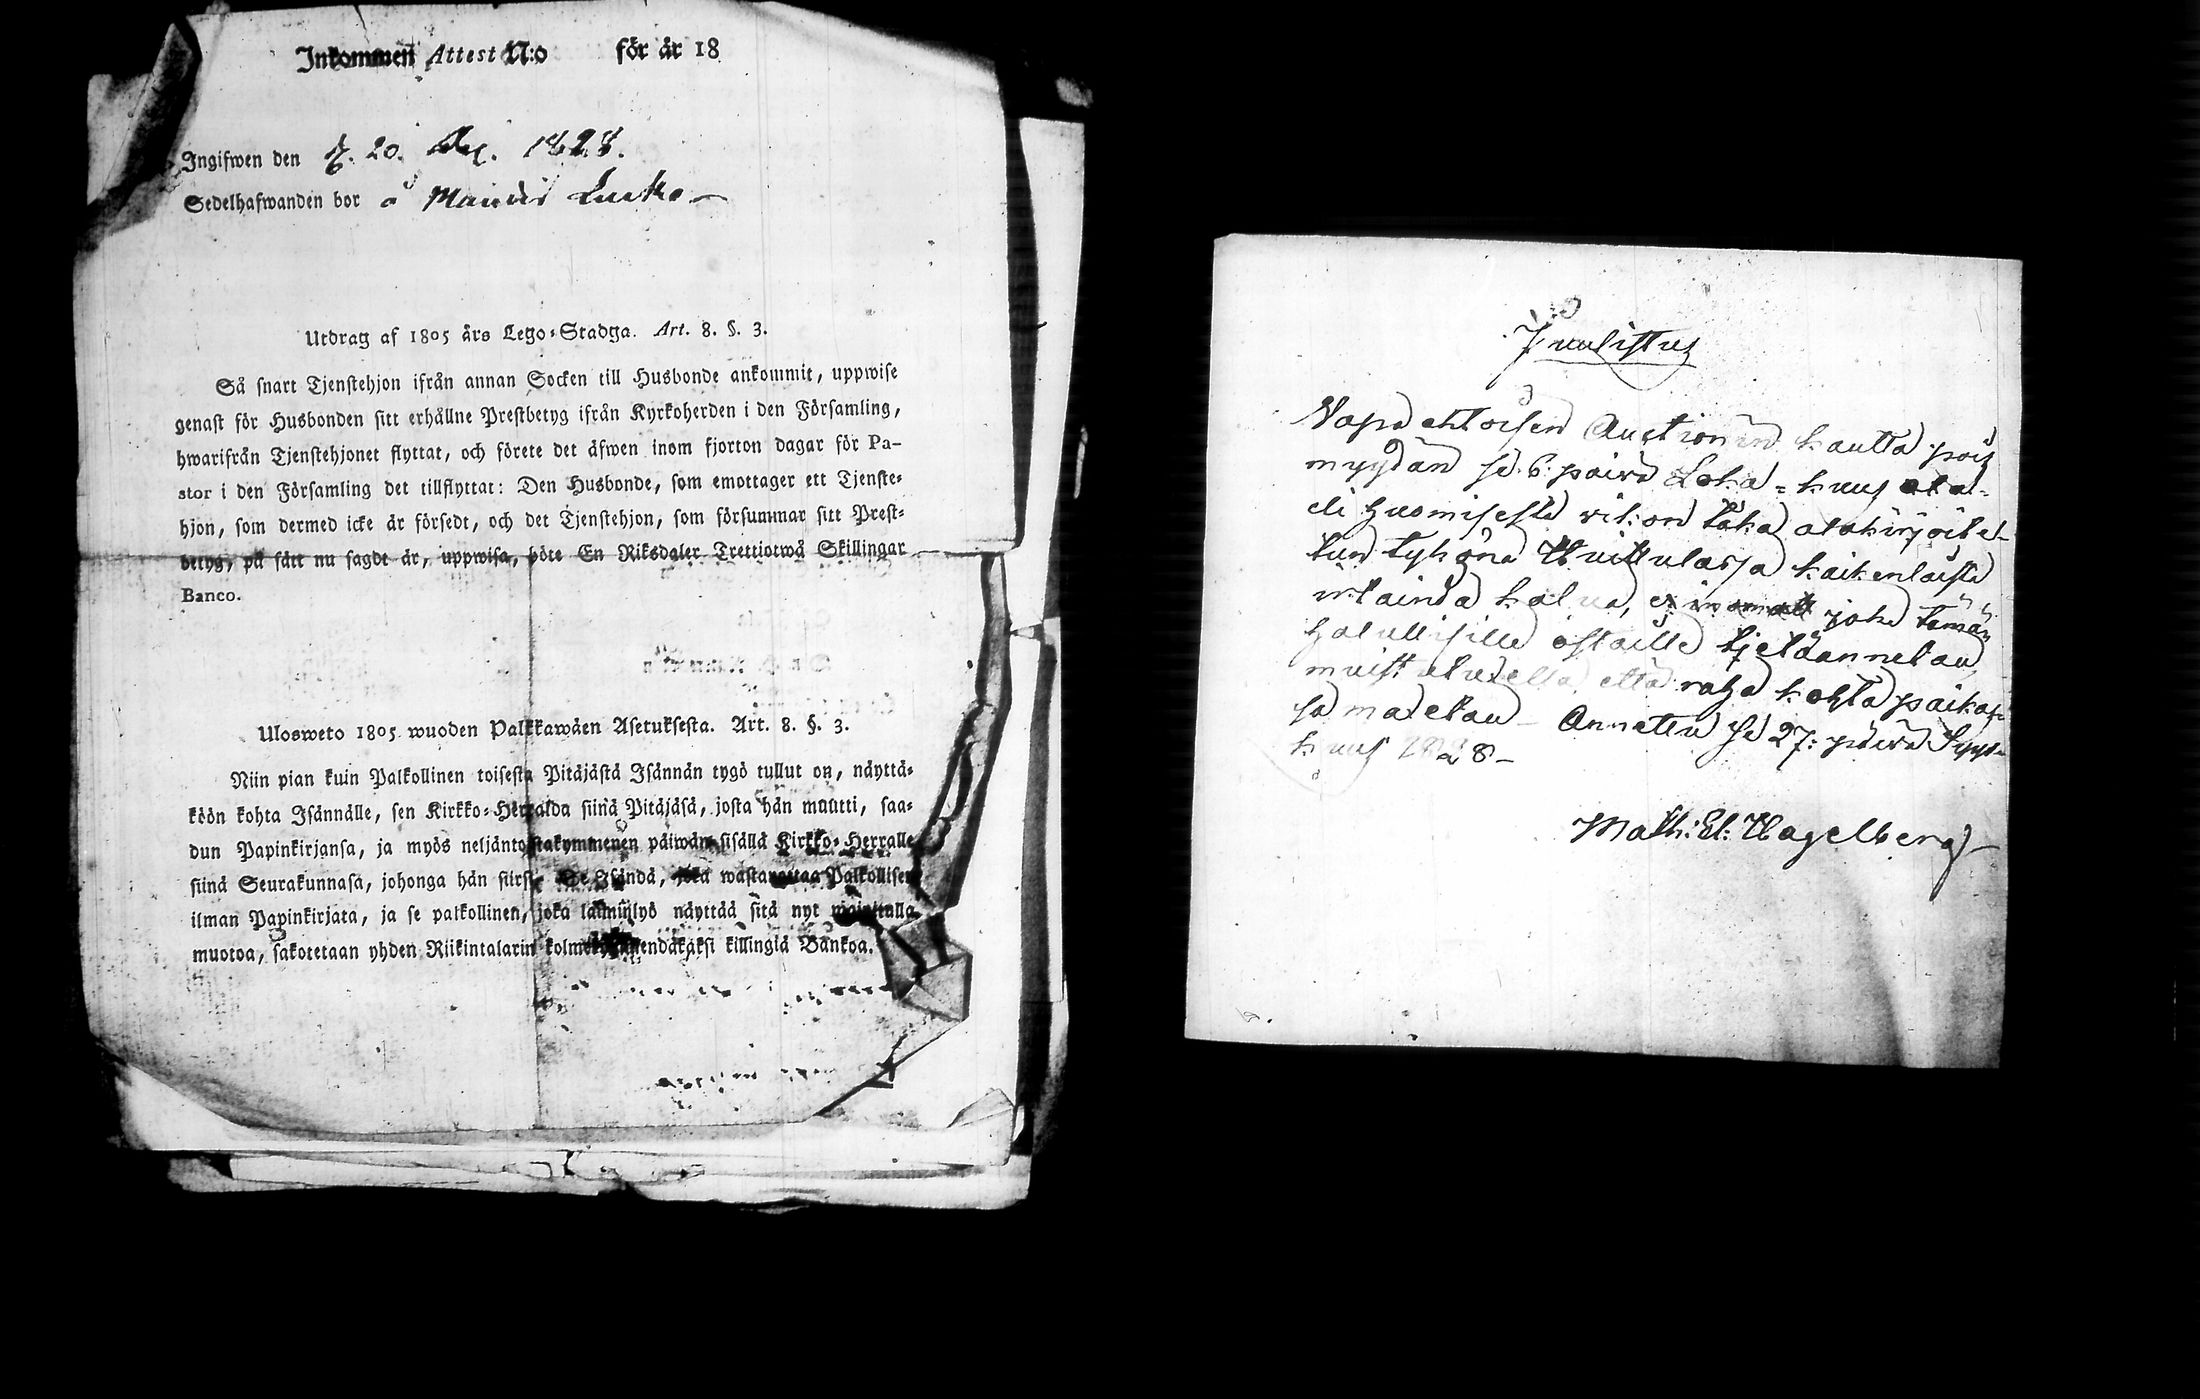 Inkommen Attest N:o för år 18
Ingifwen den d. 20. 1828.
Sedelhafwanden bor å
Utdrag af 1805 års Lego-Stadga. Art. 8. §. 3.
Så snart Tjenstehjon ifrån annan Socken till Husbonde ankommit, uppwise
genast för Husbonden sitt erhållne Prestbetyg ifrån Kyrkoherden i den Församling,
hwarifrån Tjenstehjonet flyttat, och förete det äfwen inom fjorton dagar för Pa-
stor i den Församling det tillflyttat: Den Husbonde, som emottager ett Tjenste-
hjon, som dermed icke är försedt, och det Tjenstehjon, som försummar sitt Prest-
betyg, på sätt nu sagdt är, uppwisa, böte En Riksdaler Trettiotwå Skillingar
Banco.
Ulosweto 1805 wuoden Palkkawäen Asetuksesta. Art. 8. §. 3.
Niin pian kuin Palkollinen toisesta Pitäjästä Isännän tygö tullut on, näyttä-
köön kohta Isännälle, sen Kirkko-Herralda siinä Pitäjäsä, josta hän muutti, saa-
dun Papinkirjansa, ja myös neljäntoistakymmenen päiwän sisällä Kirkko-Herralle
siinä Seurakunnasa, johonga hän siirsi. Se Isändä, joka wastaanottaa Palkollisen
ilman Papinkirjata, ja se palkollinen, joka laiminlyö näyttää sitä nyt mainitulla
muotoa, sakotetaan yhden Riikintalarin kolmekymmendäkaksi killingiä Bankoa.
Kuulistus
Vapa ehtoisen Auctionin kautta pois
myydän se 6. päivä Loka-kuus
eli huomisesta vikon täkä alakirjoitet-
tun tykönä Huittulassa kaikenlaista
irtainda kalua, joka tämän
halullisille ostaille tjetäännetan
muistutuxella että raha kohta paikas-
sa maxetan Annettu se 27: päivä Syys-
kuus 1828-
Math: El: Hagelberg